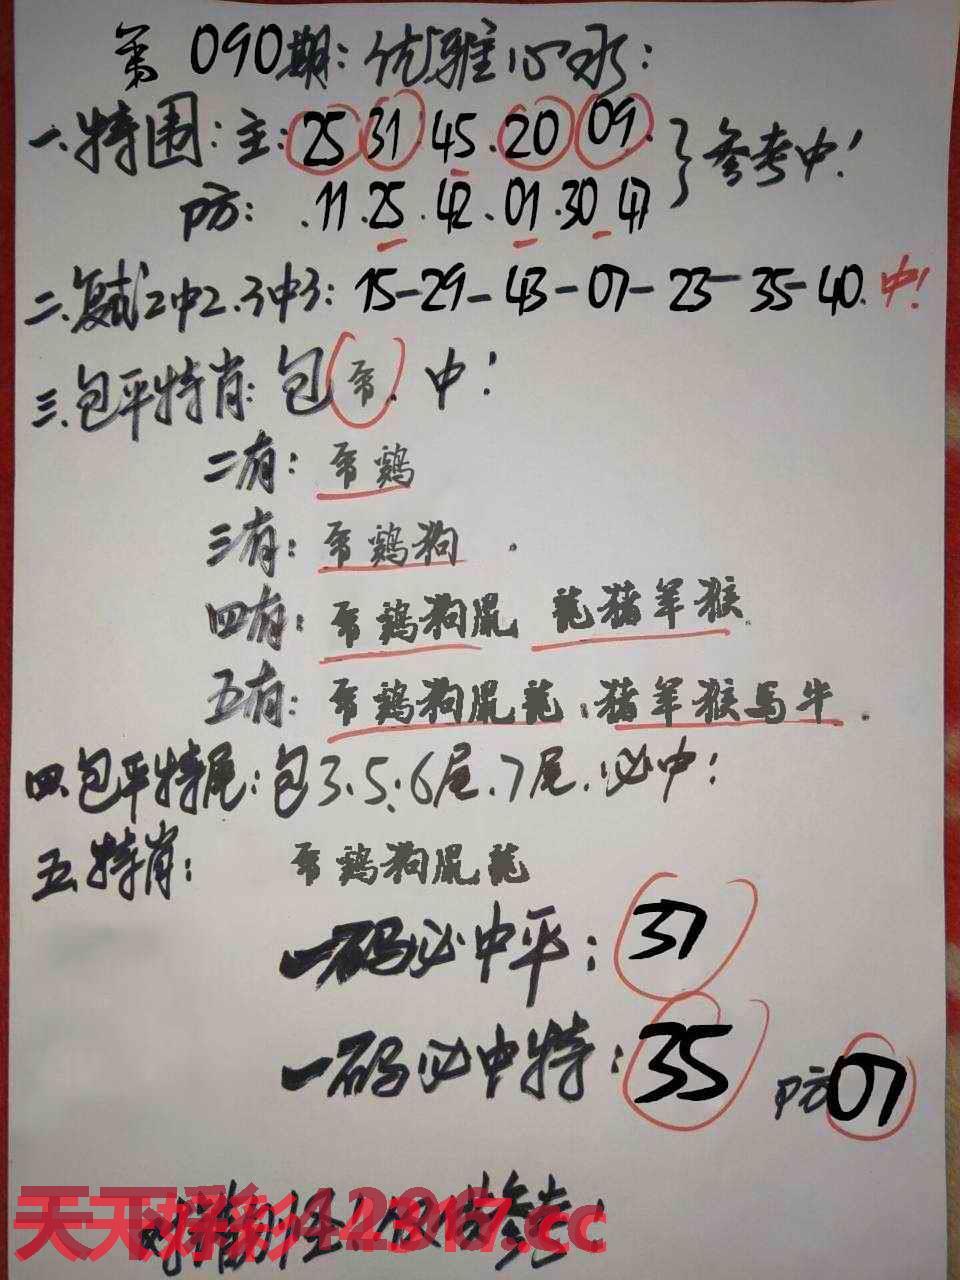 第090期:优雅心水:
一.特围:主:25 31.45.20 09.
防:.11.25.42.01.30 47
}参考中!
二.复试2中2.3中3:15-29-43-07-23-35-40.中!
三.包平特肖:包 .中!
二有: 鸡
三有: 鸡狗.
四有: 鸡狗鼠 龙猪羊猴.
五有: 鸡狗鼠龙.猪羊猴马牛.
四.包平特尾:包3.5.6尾.7尾.必中!
五.特肖: 鸡狗鼠龙
一码必中平:37
一码必中特:35 防07
天天好彩 .cc